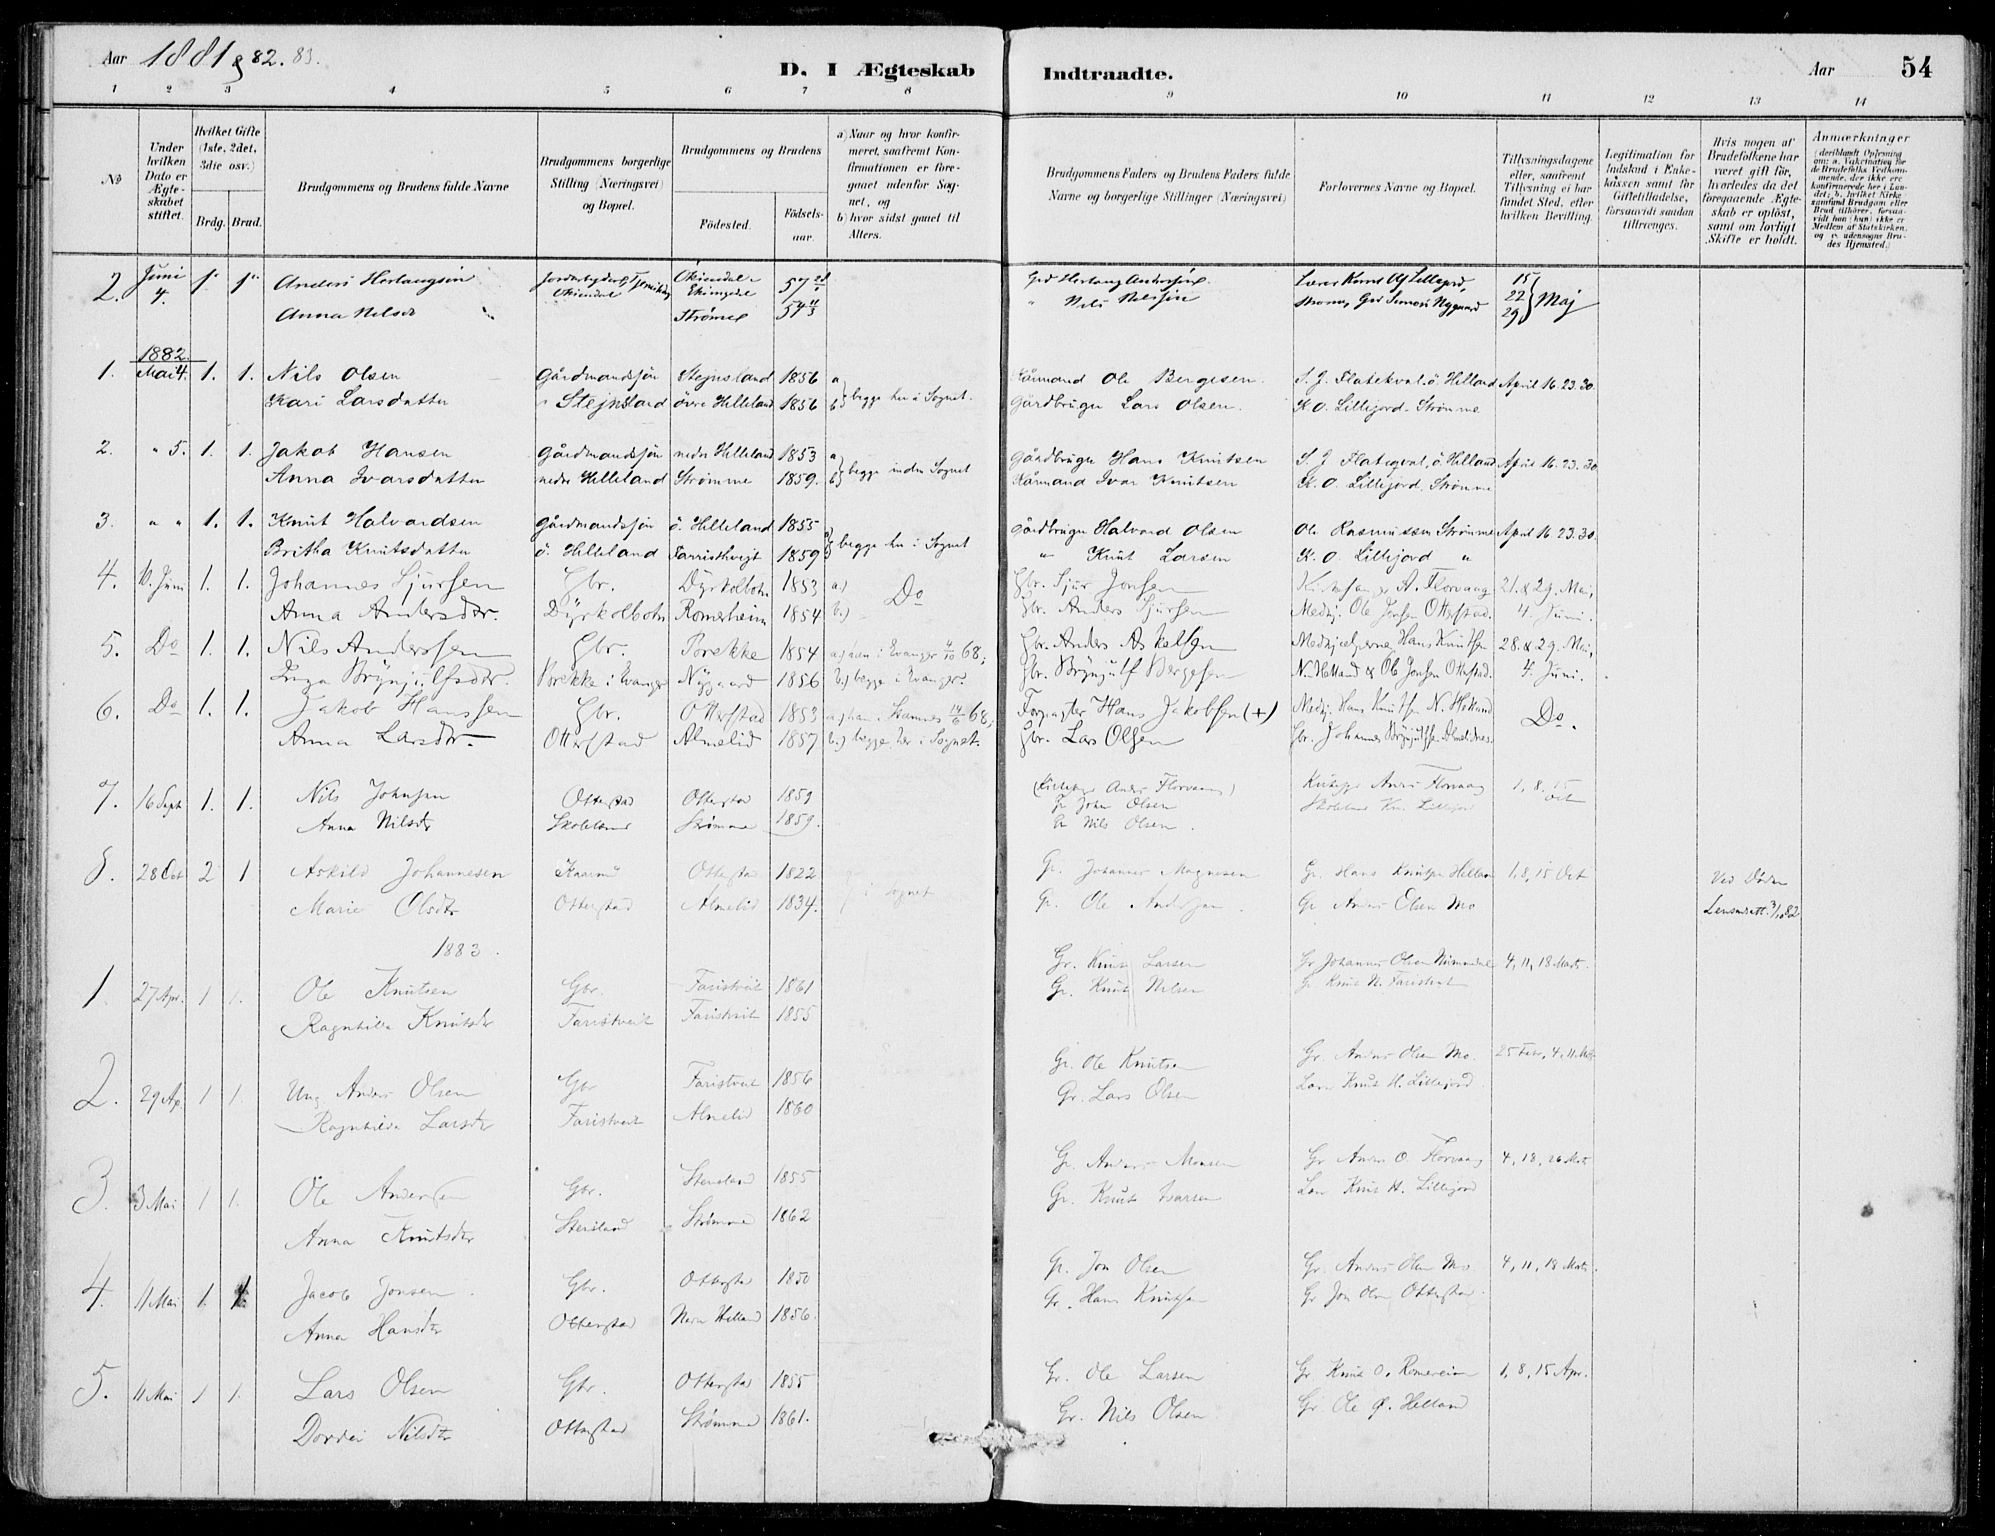 Aar 1881 & 82. 83.
D. I Ægteskab Indtraadte.
Aar 54
1 2 3 4 5 6 7 8 9 10 11 12 13 14
No
Under hvilken Dato er Ægteskabet stiftet.
Hvilket Gifte (1ste, 2det, 3die osv.)
Brdg. Brud.
Brudgommens og Brudens fulde Navne
Brudgommens borgerlige Stilling (Næringsvei) og Bopæl.
Brudgommens og Brudens
Fødested. Fødselsaar.
a) Naar og hvor konfirmeret, saafremt Konfirmationen er foregaaet udenfor Sognet, og
b) hvor sidst gaaet til Alters.
Brudgommens Faders og Brudens Faders fulde Navne og borgerlige Stillinger (Næringsvei)
Forlovernes Navne og Bopæl.
Tillysningsdagene eller, saafremt Tillysning ei har fundet Sted, efter hvilken Bevilling.
Legitimation for Indskud i Enkekassen samt for Giftetilladelse, forsaavidt saadan tiltrænges.
Hvis nogen af Brudefolkene har været gift før, hvorledes da det foregaaende Ægteskab er opløst, samt om lovligt Skifte er holdt.
Anmærkninger
2. Juni 4. Anders Herlaugsen
Anna Nilsdr Strømme
15 22 29 } Maj
1882.
1. Mai 4. 1. 1. Nils Olsen Gårdmandssøn Stejnsland 1856 a) Kårmand Ole Bergesen. S. J. Flatekval, ö. Helland April 16. 23. 30.
Kari Larsdatter Stejnsland övre Helleland 1856 b) begge her i Sognet. Gårdbruger Lars Olsen. K. O. Lillejord. Strømme
2. " 5. 1. 1. Jakob Hansen Gårdmandssøn nedre Helleland 1853 a) Gårdbruger Hans Knutsen S. J. Flatekval, ö. Helland April 16. 23. 30
Anna Ivarsdatter nedre Helleland Strømme 1859. b) begge inden Sognet Kårmand Ivar Knutsen K. O. Lillejord. Strømme
3. " " 1. 1. Knut Halvardsen Gårdmandssøn ö. Helleland 1855 Gårdbruger Halvard Olsen Ole Rasmussen Strømme April 16 23. 30.
Britha Knutsdatter ö. Helleland Farristhvejt 1859 begge her i Sognet " Knut Larsen K. O. Lillejord "
4. 10. Juni 1. 1. Johannes Sjursen Gbr. Dyrkolbotn 1853 a) Do Gbr. Sjur Jonsen A. Florvaag 21. & 29. Mai,
Anna Andersdtr. Dyrkolbotn Romerheim 1854 b.) Gbr. Anders Sjursen Medhj. Ole Jonsen Otterstad. 4. Juni.
5. Do 1. 1. Nils Anderssen Gbr. Brekke 1854 a) han i Evanger 4/10 68; Gbr. Anders Askelsen Medhjælperne Hans Knutsen 28. & 29. Mai,
Inga Brynjulfsdtr. Brekke i Evanger Nygaard 1856 b.) begge i Evanger. Gbr. Brynjulf Bergesen N. Helland & Ole Jonsen Otterstad. 4. Juni.
6. Do 1. 1. Jakob Hanssen Gbr. Otterstad 1853 a) han i Stamnes 14/6 68; Forpagter Hans Jakobsen (+) Medhj. Hans Knutsen N. Helland Do.
Anna Larsdtr. Otterstad Almelid 1857 b.) begge her i Sognet. Gbr. Lars Olsen Gbr. Johannes Brynjulfsen
7. 16 Sept 1. 1. Nils Johnsen Otterstad Otterstad 1859 (Kirkesgr Anders Florvaag) Kirkesgr Anders Florvaag 1, 8, 15 Oct
Gr John Olsen Skolelærer Kn. Lillejord
Anna Nilsdtr Skolelærer Strømme 1859. Gr Nils Olsen.
8. 28 Oct 2 1 Askild Johannesen Kaarmd Otterstad 1822 i Sognet Gr. Johannes Magnesen Gr. Hans Knutsen Helland 1, 8, 15 Oct Ved Døden
Marie Olsdtr Otterstad Almelid 1834. Gr. Ole Andersen. Gr Anders Olsen Mo
1883.
1. 27 Apr. 1 1. Ole Knutsen Gbr. Faristveit 1861 Gr. Knut Larsen Gr Johannes Olsen 4, 11, 18 Marts.
Ragnhilda Knutsdtr Faristveit Faristveit 1855 Gr. Knut Nilsen Gr Knut N. Faristveit
2. 29 Ap. 1 1. Ung Anders Olsen Gbr Faristveit 1856 Gr. Ole Knutsen Gr. Anders Olsen Mo. 25 Febr, 4, 11 Mts
Ragnhilda Larsdtr Faristveit Almelid 1860 Gr. Lars Olsen Lær Knut H. Lillejord.
3. 3 Mai 1 1. Ole Andersen Gbr. Stensland 1855 Gr. Anders Monsen Gr Anders O. Florvaag 4, 18, 26 Mts
Anna Knutsdtr Stensland Strømme 1862 Gr. Knut Ivarsen Lær Knut H. Lillejord
4. 11 Mai 1. 1. Jacob Jonsen Gbr. Otterstad 1850 Gr. Jon Olsen Gr. Anders Olsen Mo 4, 11, 18 Mts.
Anna Hansdtr Otterstad Nere Helland 1856. Gr. Hans Knutsen Gr Jon Olsen Otterstad.
5. 11 Mai 1 1. Lars Olsen Gbr. Otterstad 1855 Gr. Ole Larsen Gr. Knut O. Romereim 1, 8, 15 Apr.
Dordei Nilsdtr Otterstad Strømme 1861. Gr. Nils Olsen Gr. Ole Ø. Helland